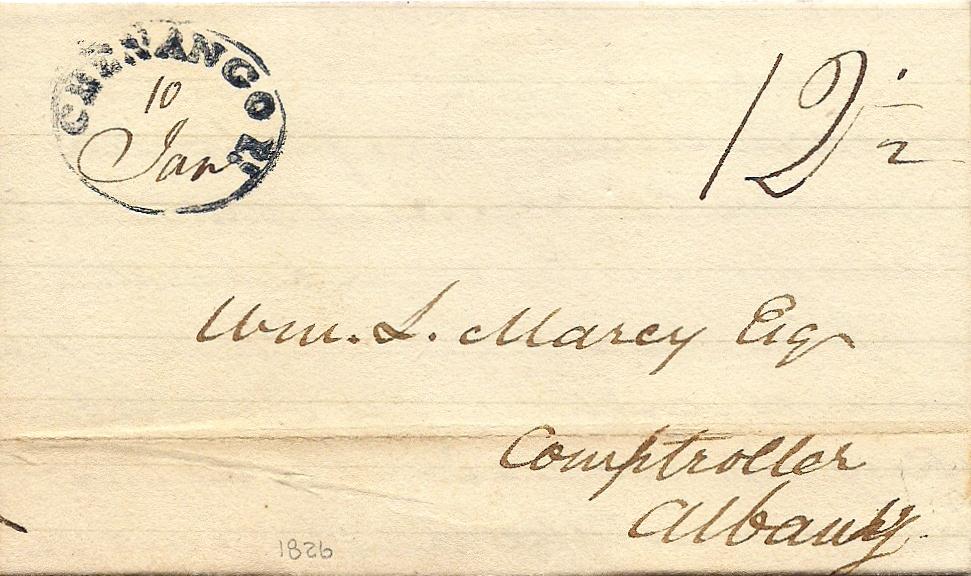 CHENANGO P.
10
Jan
12 1/2
Wm. L. Marcy Esq
Comptroller
Albany
1826